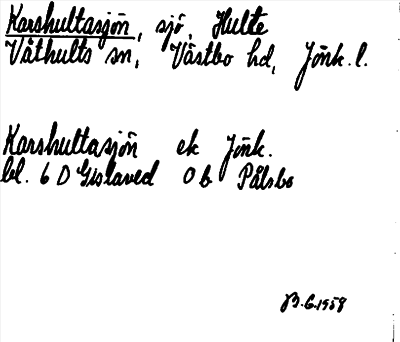 Karshultasjön, sjö, Hulte
Våthults sn, Västbo hd, Jönk. l.
Karshultasjön ek Jönk.
bl. 6 D Gislaved 0 b Pålsbo
B.G. 1959